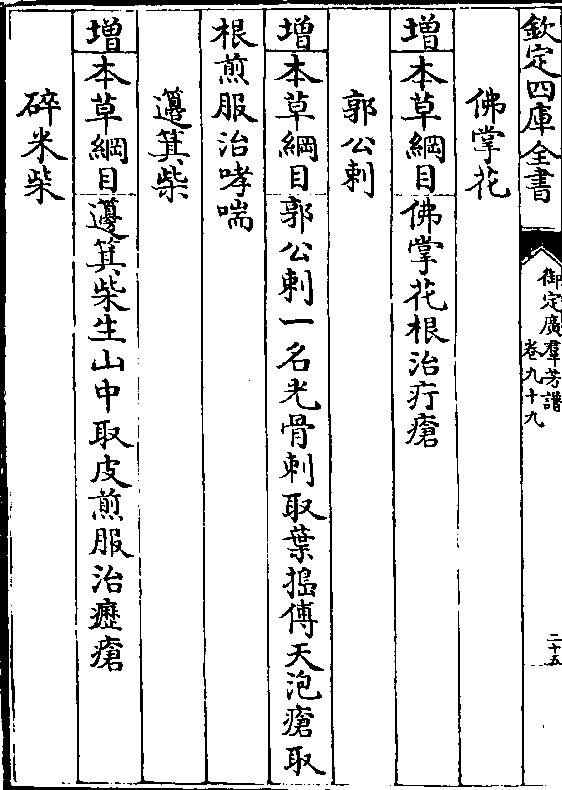 欽定四庫全書
御定廣羣芳譜
卷九十九
二十五
佛掌花
增本草綱目佛掌花根治疔瘡
郭公刺
增本草綱目郭公刺一名光骨刺取葉搗傅天泡瘡取
根煎服治哮喘
籩箕柴
增本草綱目籩箕柴生山中取皮煎服治瘞瘡
碎米柴